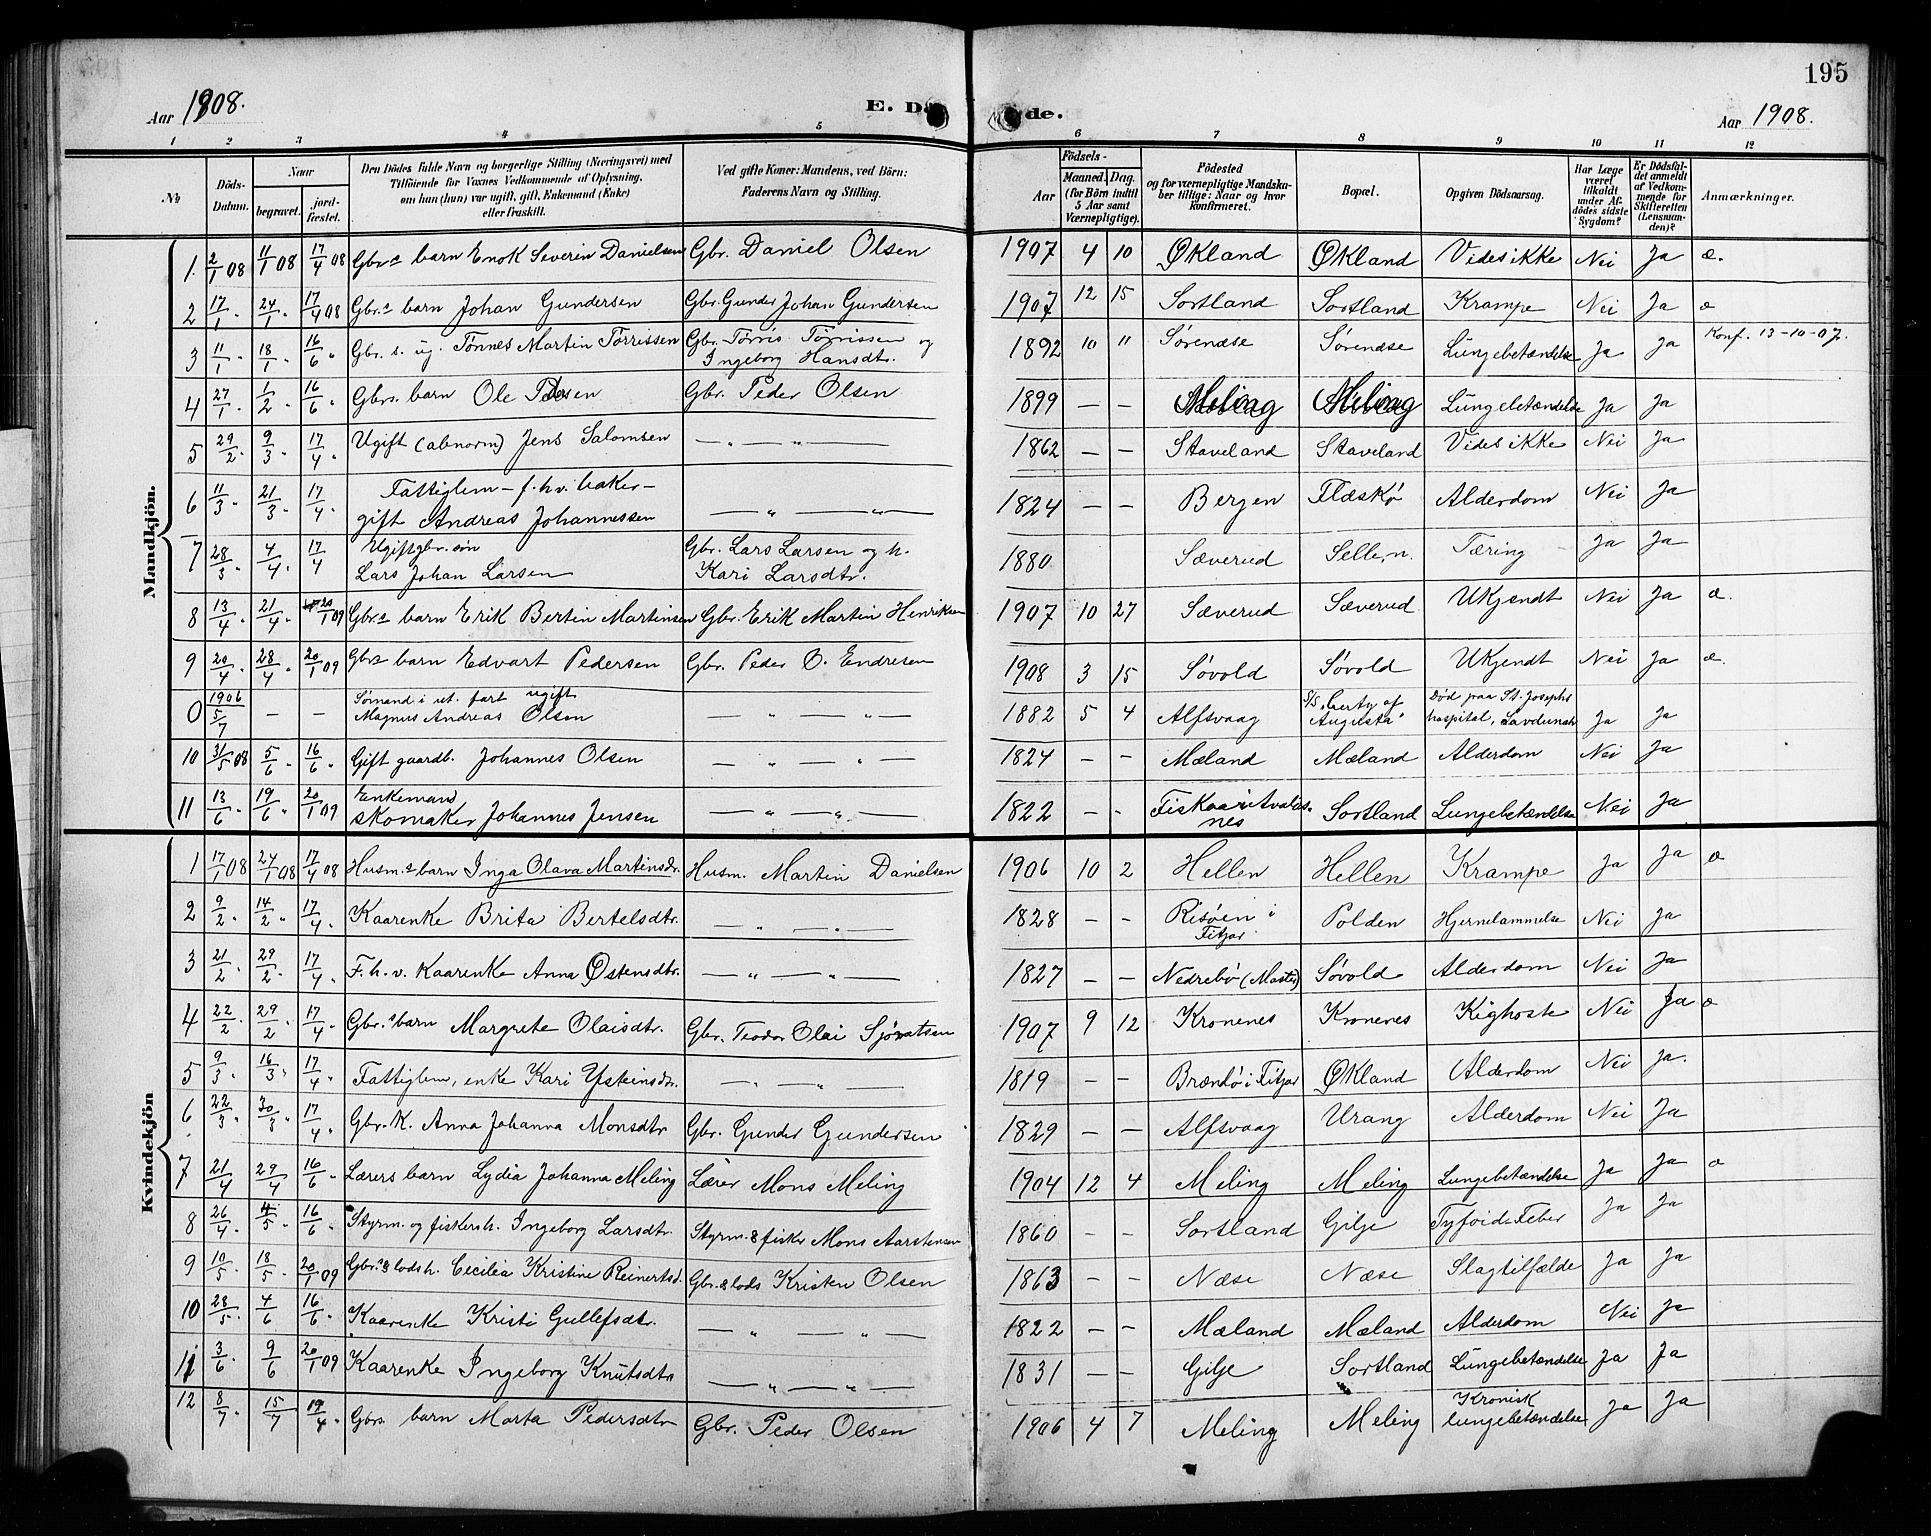 195
Aar 1908. E. Dø de. Aar 1908.
1 2 3 4 5 6 7 8 9 10 11 12
No
Döds-Datum.
Naar
begravet.
jord-fæstet.
Den Dödes fulde Navn og borgerlige Stilling (Næringsvei) med
Tilföiende for Voxnes Vedkommende af Oplysning,
om han (hun) var ugift, gift, Enkemand (Enke)
eller fraskilt.
Ved gifte Koner: Mandens, ved Börn:
Faderens Navn og Stilling.
Födsels-
Aar
Maaned. Dag.
(for Börn indtil
5 Aar samt
Værnepligtige).
Födested
og for værnepligtige Mandska-
ber tillige: Naar og hvor
konfirmeret.
Bopæl.
Opgiven Dödsaarsag.
Har Læge
været
tilkaldt
under Af-
dödes sidste
Sygdom?
Er Dödsfal-
det anmeldt
af Vedkom-
mende for
Skifteretten
(Lensman-
den)?
Anmærkninger.
Mandkjön.
1. 2/1 08 11/1 08 17/4 08 Gbr.s barn Enok Severin Danielsen Gbr. Daniel Olsen 1907 4 10 Økland Økland Vides ikke Nei Ja æ.
2 17/1 . 24/1 . 17/4 08 Gbr.s barn Johan Gundersen Gbr. Gunder Johan Gundersen 1907 12 15 Sortland Sortland Krampe Nei Ja æ
3 11/1 . 18/1 . 16/6 " Gbr. s. ug. Tönnes Martin Törrissen Gbr. Tørris Tørrissen og
Ingeborg Hansdtr. 1892 10 11 Sørenæse Sørenæse Lungebetændelse Ja Ja Konf. 13-10-07.
4 27/1 . 1/2 . 16/6 . Gbrs. barn Ole Pedersen Gbr. Peder Olsen 1899 — — Meling Meling Lungebetændelse Ja Ja
5 29/2 . 9/3 . 17/4 . Ugift (abnorm) Jens Salomsen — " — " — 1862 — — Staveland Staveland Vides ikke Nei Ja
6 11/3 . 21/3 . 17/4 . Fattiglem — f. h.v. baker —
gift Andreas Johannessen — " — " — 1824 — — Bergen Flæskø Alderdom Nei Ja
7 28/3 . 4/4 . 17/4 Ugift gbr. søn
Lars Johan Larsen Gbr. Lars Larsen og h.
Kari Larsdtr. 1880 Sæverud Selle, n. Tæring Ja Ja
8 13/4 . 21/4 . 20/1 09 Gbr.s barn Erik Bertin Martinsen Gbr. Erik Martin Henriksen 1907 10 27 Sæverud Sæverud Ukjendt Nei Ja æ.
9 20/4 . 28/4 . 20/1 09 Gbrs barn Edvart Pedersen Gbr. Peder O. Endresen 1908 3 15 Søvold Søvold Ukjendt Nei Ja æ.
0 1906 5/7 — — Sømand i ut. fart ugift
Magnus Andreas Olsen — " — " — 1882 5 4 Alfsvaag S/S "Certy af
Augusta" Død paa St. Josephs
hospital, Ja Ja
10 31/5 08 5/6 . 16/6 . Gift gaardb. Johannes Olsen — " — " — 1824 — — Mæland Mæland Alderdom Nei Ja
11 13/6 . 19/6 . 20/1 09 Enkemand
skomaker Johannes Jensen — " — " — 1822 — — Sortland Lungebetændelse Nei Ja
Kvindekjön
1 17/1 08 24/1 08 17/4 08 Husm.s barn Inga Olava Martinsdr. Husm. Martin Danielsen 1906 10 2 Hellen Hellen Krampe Ja Ja æ
2 9/2 . 14/2 . 17/4 . Kaarenke Brita Bertelsdtr. — " — " — 1828 — — Risøen i
Fitjar Polden Hjernelammelse Nei Ja
3 21/2 . 29/2 . 17/4 . F. h. v. Kaarenke Anna Østensdtr. — " — " — 1827 — — Nedrebø (Moster) Søvold Alderdom Nei Ja
4 22/2 . 29/2 . 17/4 . Gbr.s barn Margrete Olaisdtr. Gbr. Teodor Olai Sjovatsen 1907 9 12 Kronenes Kronenes Kighoste Nei Ja æ
5 9/3 . 16/3 . 17/4 . Fattiglem, enke Kari Ysteinsdtr. — " — " — 1819 — — Brændø i Fitjar Økland Alderdom Nei Ja.
6 22/3 . 30/3 . 17/4 . Gbr. K. Anna Johanna Monsdtr Gbr. Gunder Gundersen 1829 — — Alfsvaag Urang Alderdom Nei Ja
7 21/4 29/4 16/6 . Lærers barn Lydia Johanna Meling Lærer Mons Meling 1904 12 4 Meling Meling Lungebetændelse Ja Ja æ
8 26/4 . 4/5 . 16/6 . Styrm. og fiskersh. Ingeborg Larsdtr. Styrm. & fisker Mons Aarstensen 1860 — — Sortland Gilje Tyfoid-Feber Ja Ja
9 10/5 . 18/5 . 20/1 09 Gbr.s & lods h. Cecilia Kristine Reinertsd. Gbr. & lods Kristen Olsen 1863 — — Næse Næse Slagtilfælde Ja Ja
10 28/5 . 4/6 16/6 . Kaarenke Kristi Gullefsdtr. — " — " — 1822 — — Mæland Mæland Alderdom Nei Ja
11 3/6 . 9/6 20/1 09 Kaarenke Ingeborg Knutsdtr — " — " — 1831 — — Gilje Sortland Lungebetændelse Ja Ja
12 8/7 . 15/7 19/4 . Gbrs barn Marta Pedersdtr Gbr. Peder Olsen 1906 4 7 Meling Meling Kronisk
lungebetændelse Ja Ja